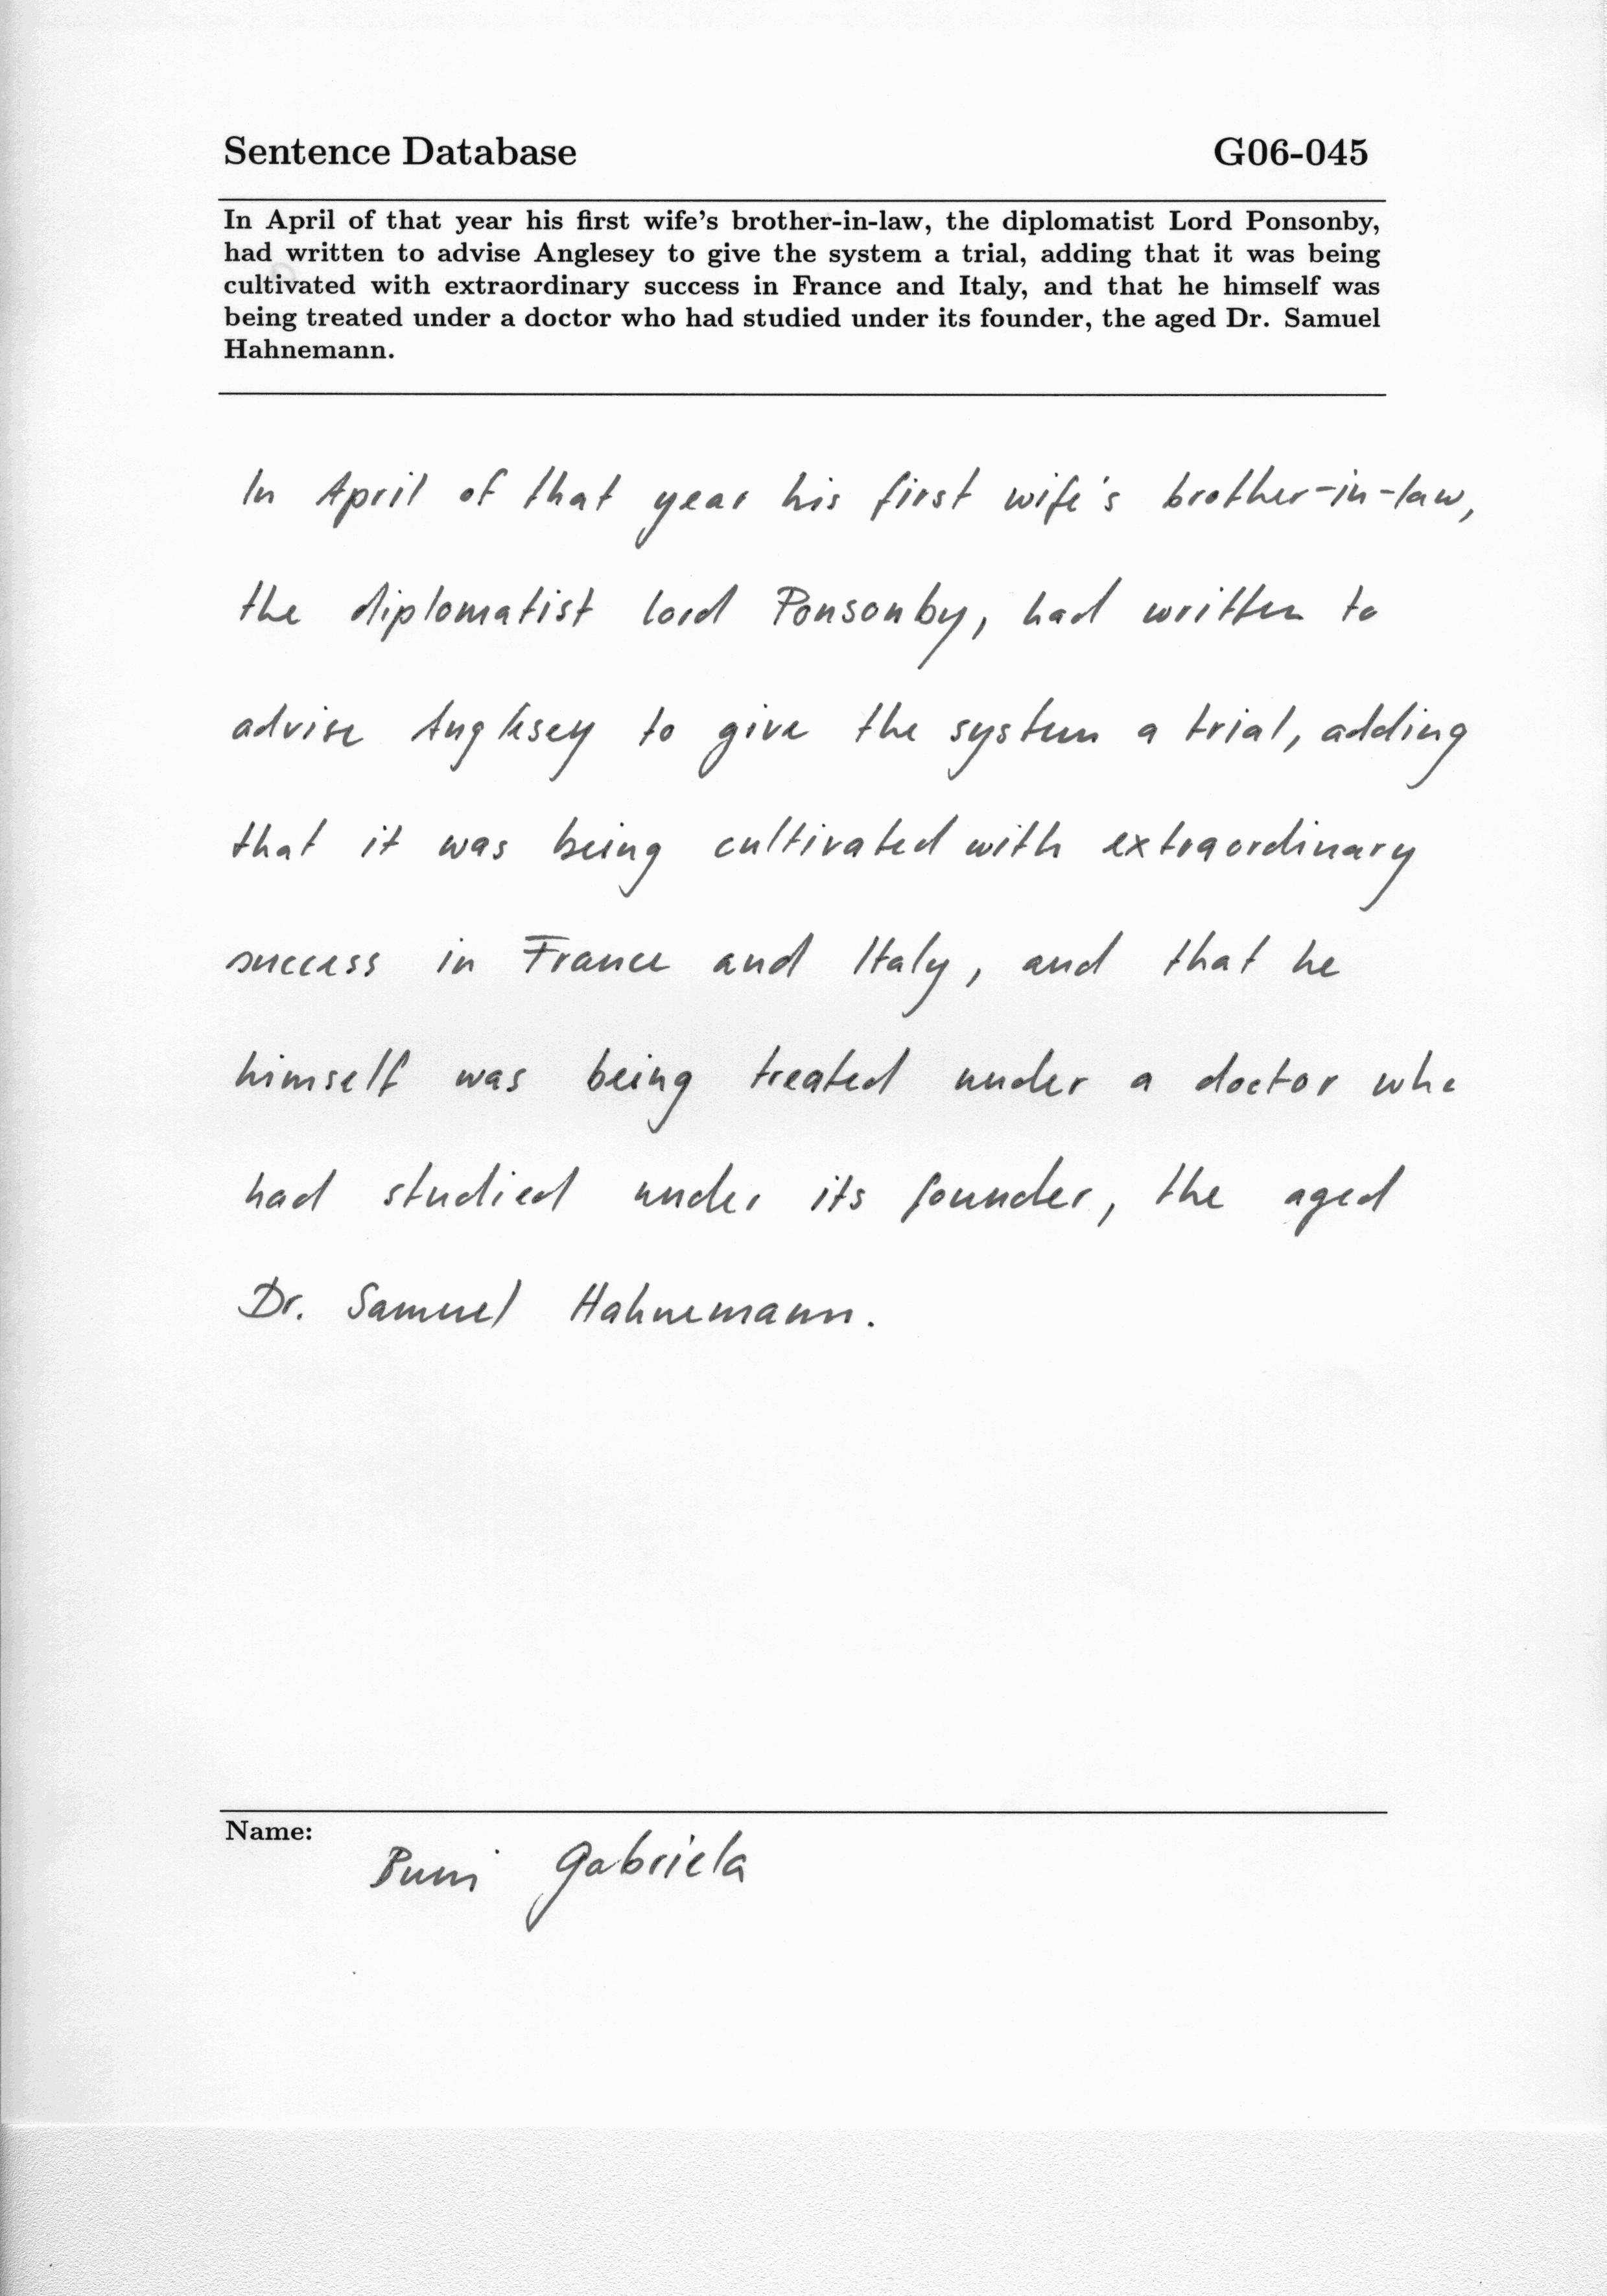 Sentence Database G06-045
In April of that year his first wife's brother-in-law, the diplomatist Lord Ponsonby,
had written to advise Anglesey to give the system a trial, adding that it was being
cultivated with extraordinary success in France and Italy, and that he himself was
being treated under a doctor who had studied under its founder, the aged Dr. Samuel
Hahnemann.
In April of that year his first wife's brother-in-law,
the diplomatist Lord Ponsonby, had written to
advise Anglesey to give the system a trial, adding
that it was being cultivated with extraordinary
success in France and Italy, and that he
himself was being treated under a doctor who
had studied under its founder, the aged
Dr. Samuel Hahnemann.
Name:
Gabriela